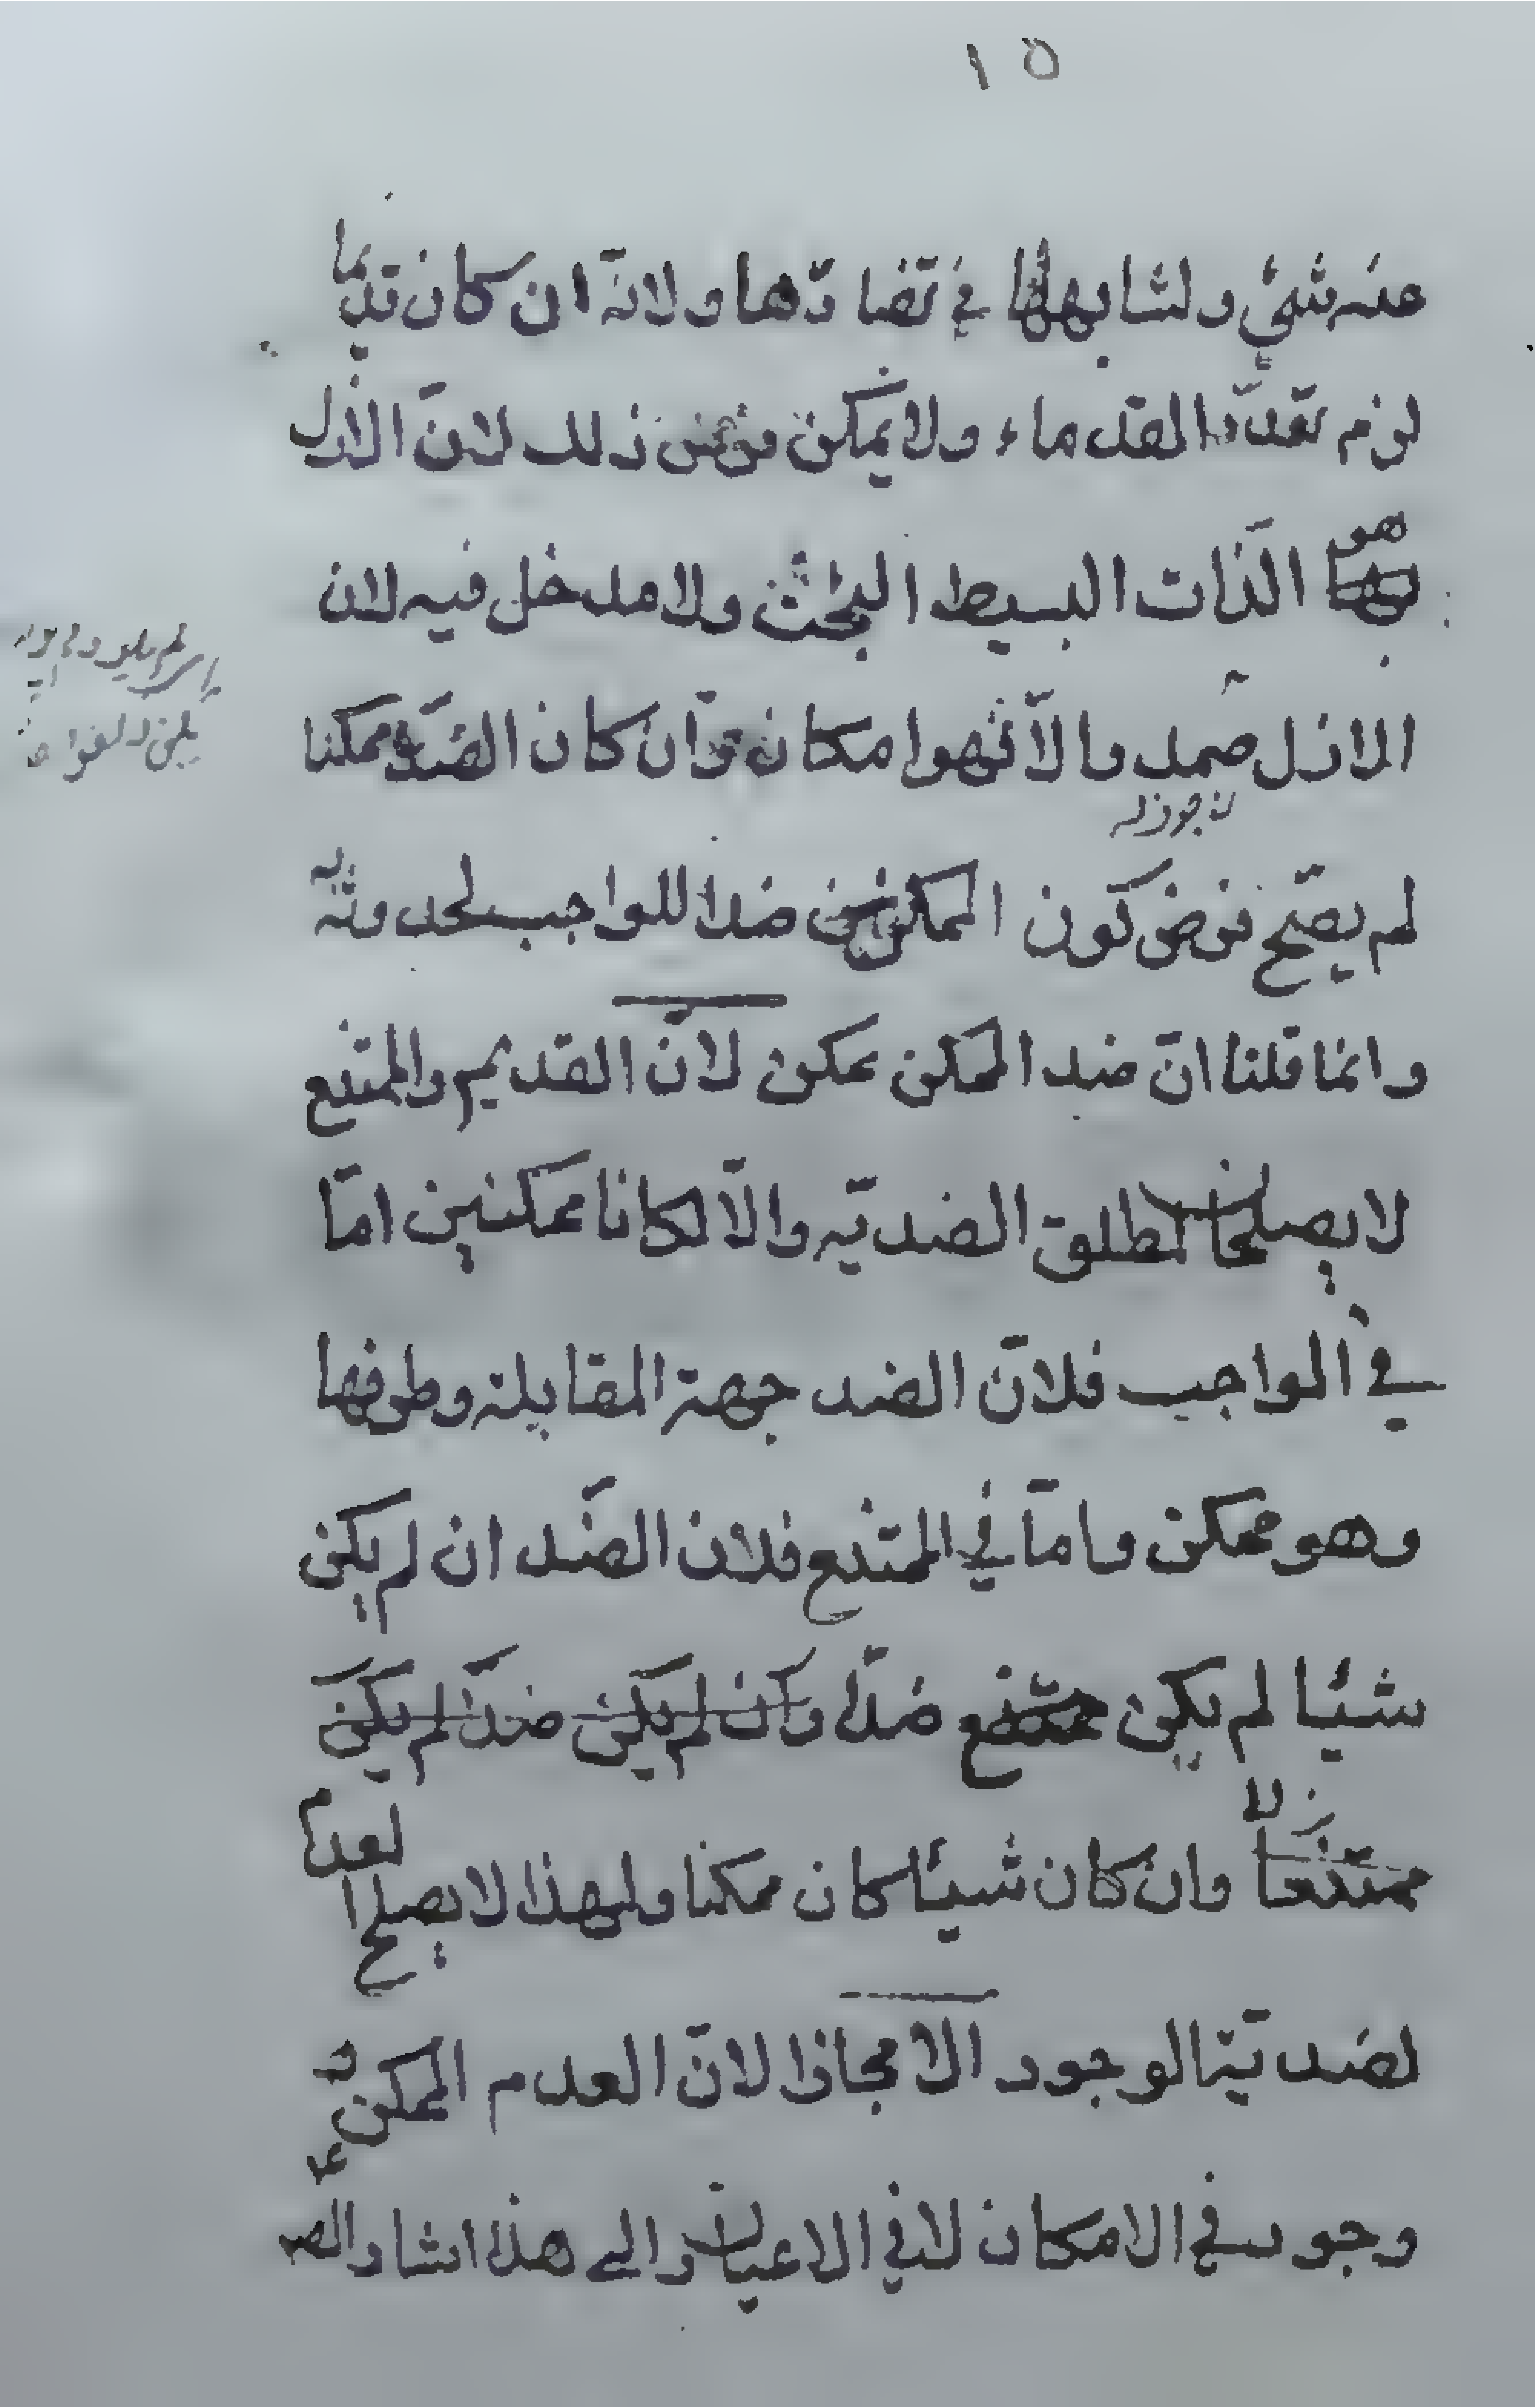 ١٥
عنه شئ ولشابهها في تضادّها ولانّه ان كان قديما
لزم تعدّد القدماء ولا يمكن فرض ذلك لانّ الازل
هو الذّات البسيط البحث ولا مدخل فيه لان
الازل صمد والّا فهو امكان وان كان الضدّ ممكنا
لم يصّح فرض كون الممكن ضدا للواجب لحدوثه
وانما قلنا انّ ضد الممكن ممكن لانّ القديم والممتنع
لا يصلحان لمطلق الضديّه والّا لكانا ممكنين امّا
في الواجب فلانّ الضد جهة المقابلة وطرفها
وهو ممكن وامّا في الممتنع فلان الضّد ان لم يكن
شيئا لم يكن ممتنع ضدّا وان لم يكن ضدّ لم يكن
ممتنعا وان كان شيئا كان ممكنا ولهذا لا يصلح العدم
لضديّة الوجود الا مجازا لانّ العدم الممكن
وجود في الامكان لا في الاعيان والى هذا اشار الص